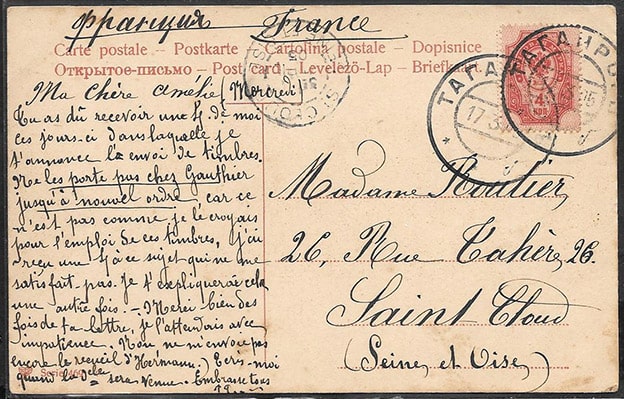 Франция France
Carte postale – Postkarte – Cartolina postale – Dopisnice
Открытое письмо – Post card – Levelező-Lap – Briefk
Ma Chère Amélie (Mercredi)
Tu as dû recevoir une L de moi
ces jours-ci dans laquelle je
t'annonce l'envoi de timbres.
Ne les porte pas chez Gauthier
jusqu'à nouvel ordre, car ce
n'est pas comme je le croyais
pour l'emploi de ces timbres, j'ai
reçu une L à ce sujet qui ne me
satisfait pas. Je t'expliquerai cela
une autre fois. – Merci bien des
fois de ta lettre, je l'attendais avec
impatience. Non ne m'envoie pas
encore le recueil d'Hermann.) Écris-moi
quand la sera venue. Embrasse tous
Serie
ТАГАНРОГ
ТАГА
17.3
4
КОП
Madame Routier
26, Rue Tahère, 26.
Saint Cloud
(Seine et Oise)